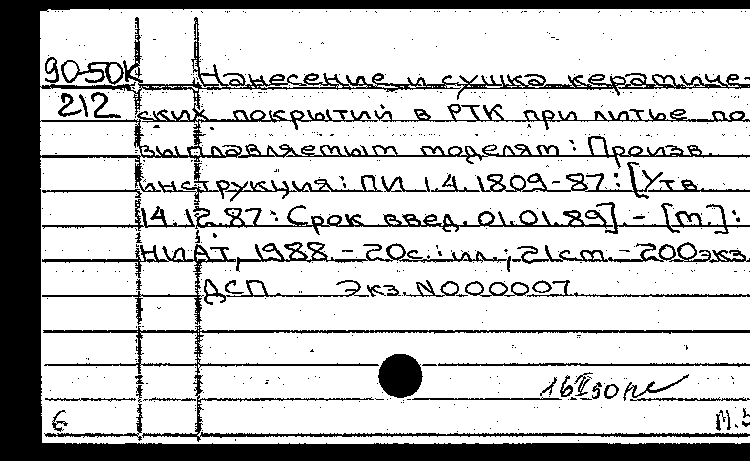 90-50К Нанесение и сушка керамиче-
212 ских покрытий в РТК при литье по
выплавляемым моделям: Произв.
инструкция: ПИ 1.4.1809-87: [Утв.
14.12.87: Срок введ. 01.01.89]. - [М.]:
НИАТ, 1988. - 20с.: ил.; 21см. - 200экз.
ДСП. Экз. N000007.
16 II 90
6 М.